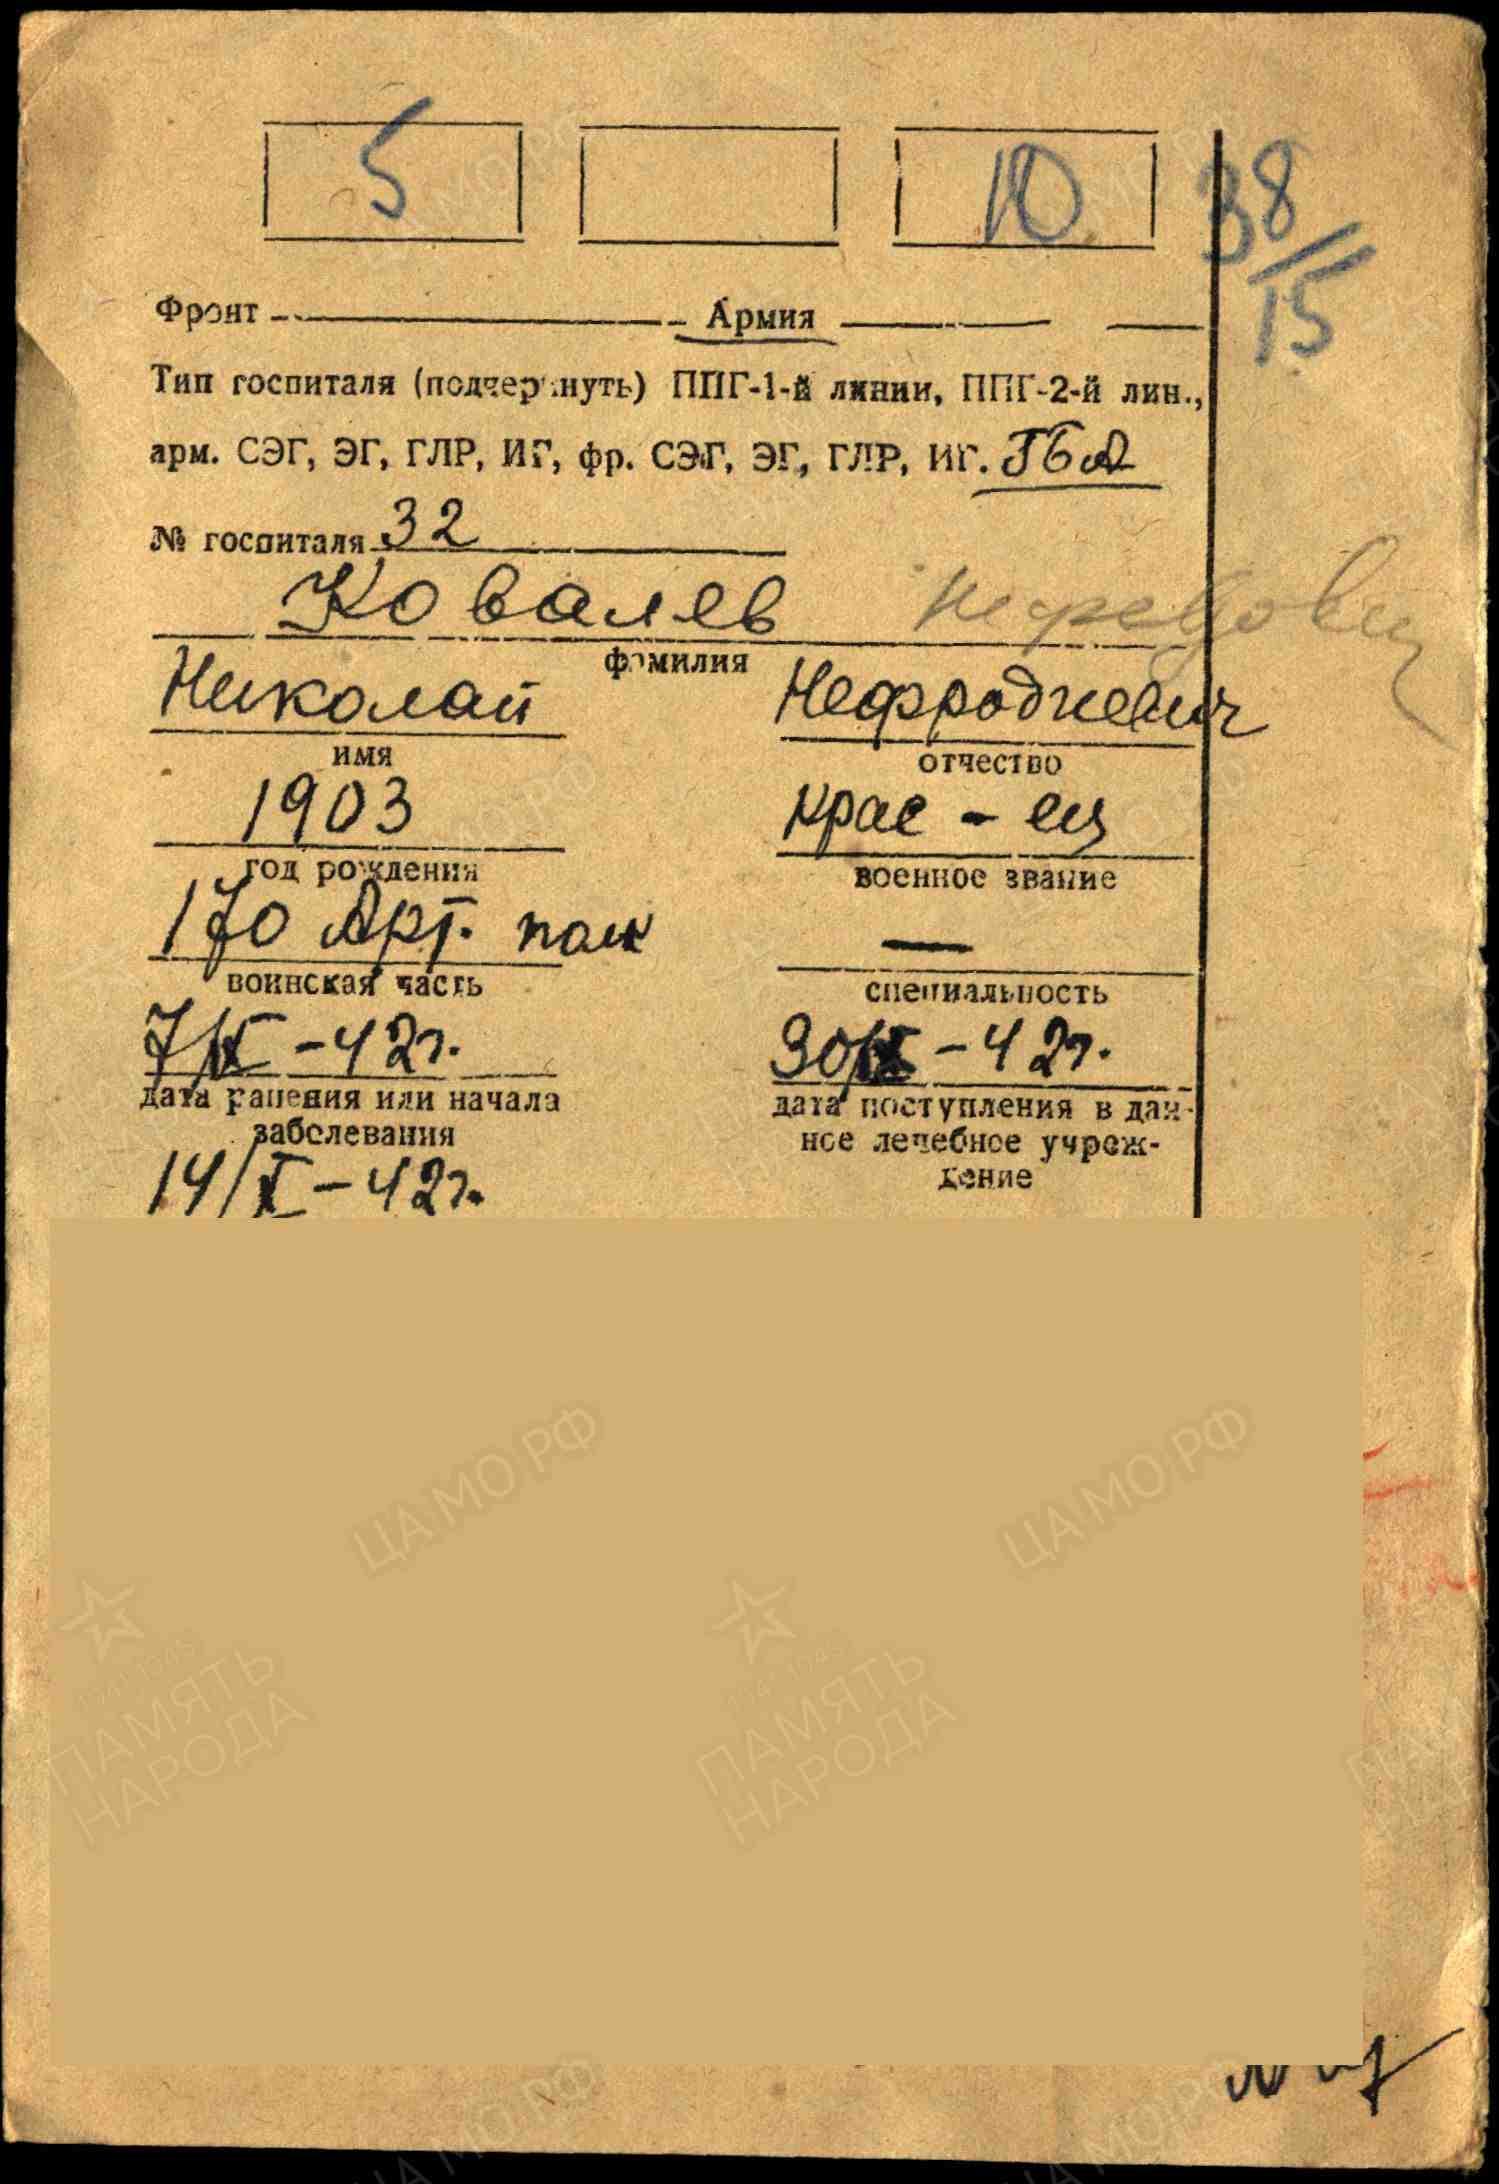 5 10
38/15
Фронт Армия
Тип госпиталя (подчеркнуть) ППГ-1-й линии, ППГ-2-й лин.,
арм. СЭГ, ЭГ, ГЛР, ИГ, фр. СЭГ, ЭГ, ГЛР, ИГ. ГБА
№ госпиталя 32
Ковалев
фамилия
Николай Нефродиевич
имя отчество
1903 крас - ец
год рождения военное звание
170 Арт. полк —
воинская часть специальность
7/X - 42г. 30/X - 42г.
дата ранения или начала заболевания
дата поступления в данное лечебное учреждение
14/X - 42г.
ЦАМО.РФ ЦАМО.РФ
1941-1945 1941-1945
ПАМЯТЬ ПАМЯТЬ
НАРОДА НАРОДА